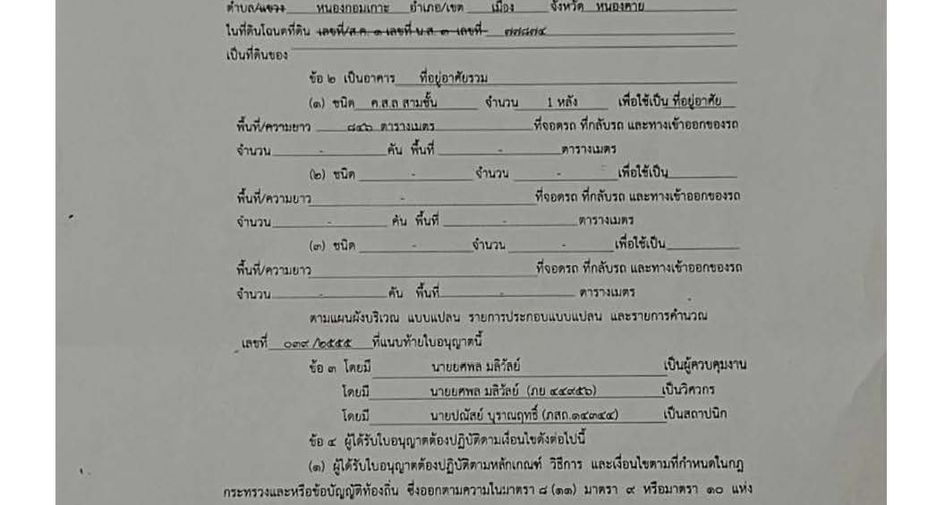 ตำบล/แขวง หนองกอมเกาะ อำเภอ/เขต เมือง จังหวัด หนองคาย
ในที่ดินโฉนดที่ดิน เลขที่/ส.ค. ๑ เลขที่ น.ส. ๓ เลขที่ ๗๗๘๗๔
เป็นที่ดินของ
ข้อ ๒ เป็นอาคาร ที่อยู่อาศัยรวม
(๑) ชนิด ค.ส.ล สามชั้น จำนวน 1 หลัง เพื่อใช้เป็น ที่อยู่อาศัย
พื้นที่/ความยาว ๘๔๖ ตารางเมตร ที่จอดรถ ที่กลับรถ และทางเข้าออกของรถ
จำนวน - คัน พื้นที่ - ตารางเมตร
(๒) ชนิด - จำนวน - เพื่อใช้เป็น
พื้นที่/ความยาว - ที่จอดรถ ที่กลับรถ และทางเข้าออกของรถ
จำนวน - คัน พื้นที่ - ตารางเมตร
(๓) ชนิด - จำนวน - เพื่อใช้เป็น
พื้นที่/ความยาว ที่จอดรถ ที่กลับรถ และทางเข้าออกของรถ
จำนวน - คัน พื้นที่ - ตารางเมตร
ตามแผนผังบริเวณ แบบแปลน รายการประกอบแบบแปลน และรายการคำนวณ
เลขที่ ๐๓๙ /๒๕๕๕ ที่แนบท้ายใบอนุญาตนี้
ข้อ ๓ โดยมี นายยศพล มลิวัลย์ เป็นผู้ควบคุมงาน
โดยมี นายยศพล มลิวัลย์ (ภย ๔๔๙๕๖) เป็นวิศวกร
โดยมี นายปณัสย์ บุราณฤทธิ์ (ภสถ.๑๔๓๔๔) เป็นสถาปนิก
ข้อ ๔ ผู้ได้รับใบอนุญาตต้องปฏิบัติตามเงื่อนไขดังต่อไปนี้
(๑) ผู้ได้รับใบอนุญาตต้องปฏิบัติตามหลักเกณฑ์ วิธีการ และเงื่อนไขตามที่กำหนดในกฎ
กระทรวงและหรือข้อบัญญัติท้องถิ่น ซึ่งออกตามความในมาตรา ๘ (๑๑) มาตรา ๙ หรือมาตรา ๑๐ แห่ง